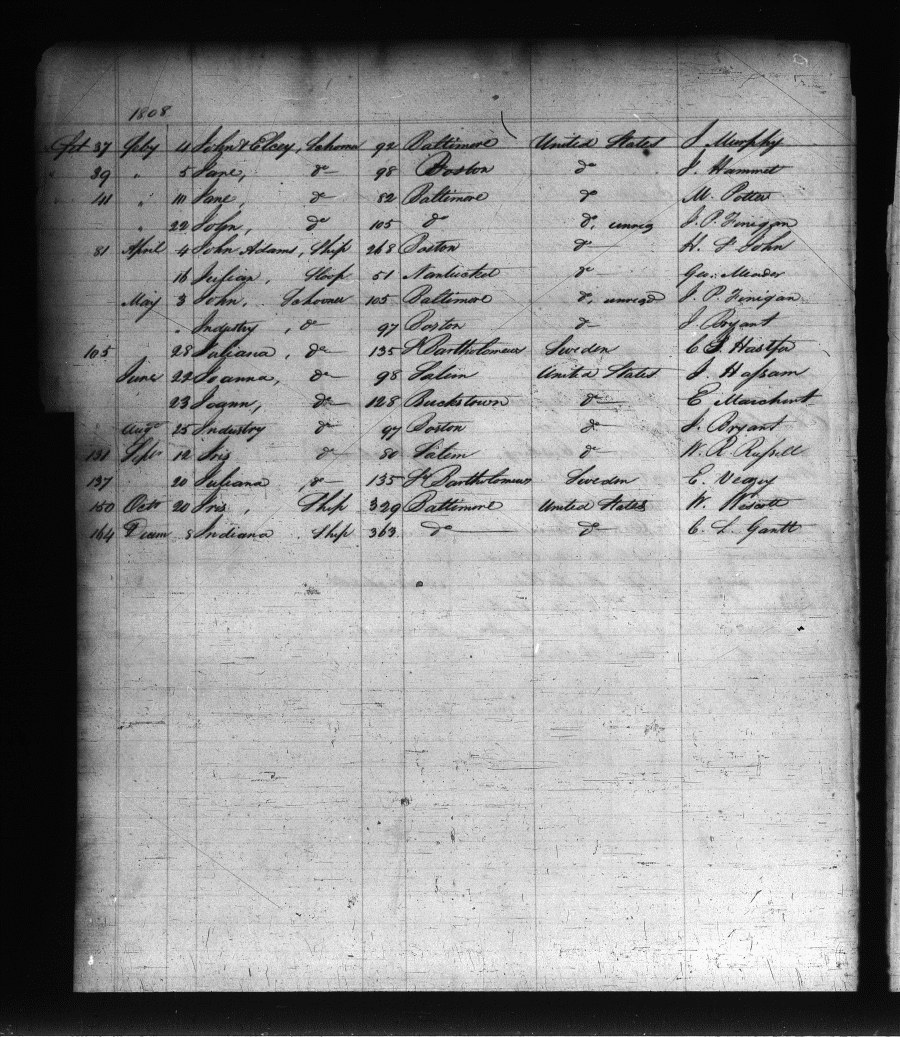 1808
37 Feby 4 John & Elcey, Schoner 92 Baltimore United States J Murphy
39 " 5 Jane, do 98 Boston do J. Hammet
41 " 10 Jane, do 82 Baltimore do M. Potter
" 22 John, do 105 do do, unreg J. P. Finigan
81 April 4 John Adams, Ship 268 Boston do H. St John
16 Julian, Sloop 51 Nantucket do Geo: Meader
May 3 John, Schooner 105 Baltimore do, unregd J. P. Finigan
" Industry, do 97 Boston do J. Bryant
105 28 Juliana, do 135 St Bartholomew Sweden
June 22 Joanna, do 98 Salem United States J. Hassam
23 Joann, do 128 Buckstown do E Marchent
Augt 25 Industry do 97 Boston do J. Bryant
131 Septr 12 Iris do 80 Salem do W. R. Russell
137 20 Juliana, do 135 St Bartholomew Sweden E. Veazey
150 Octr 20 Iris, Ship 329 Baltimore United States W. Wescott
164 Decem 8 Indiana, Ship 363 do do C. L. Gantt